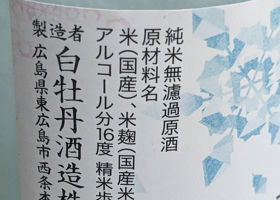 純米無濾過原酒
原材料名
米(国産)、米麹(国産米
アルコール分16度 精米歩
製造者
白牡丹酒造株
広島県東広島市西条本